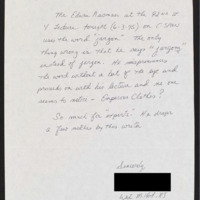 Mr. Edwin Newman at the
Lecture tonight (6-3-85) on C Span
uses the word "jargon". The only
thing wrong is that he says "jargong"
instead of jargon. He mispronounces
the word without a lot of
proceeds on with his lecture and no one
seems to notice - Emperor's Clothes?
So much for "experts". He drops
a few notches by this writer.
Sincerely